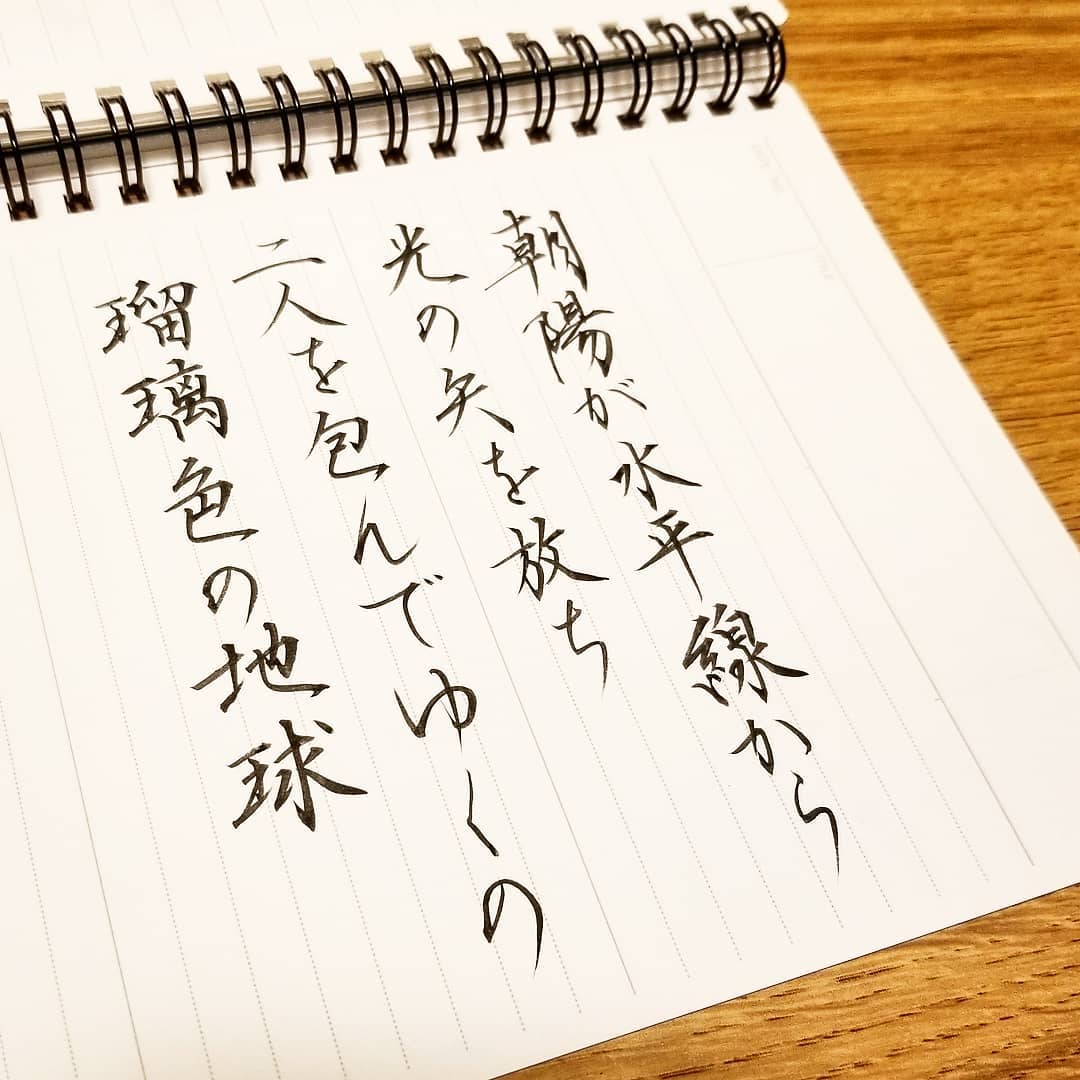 朝陽が水平線から
光の矢を放ち
二人を包んでゆくの
瑠璃色の地球